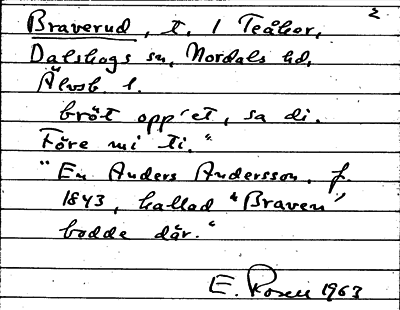 2
Braverud, t. 1 Teåkor,
Dalskogs sn, Nordals hd,
Älvsb. l.
bröt opp'et, sa di.
Före mi ti."
"En Anders Andersson, f.
1843, kallad "Braven"
bodde där."
E. Rosen 1963